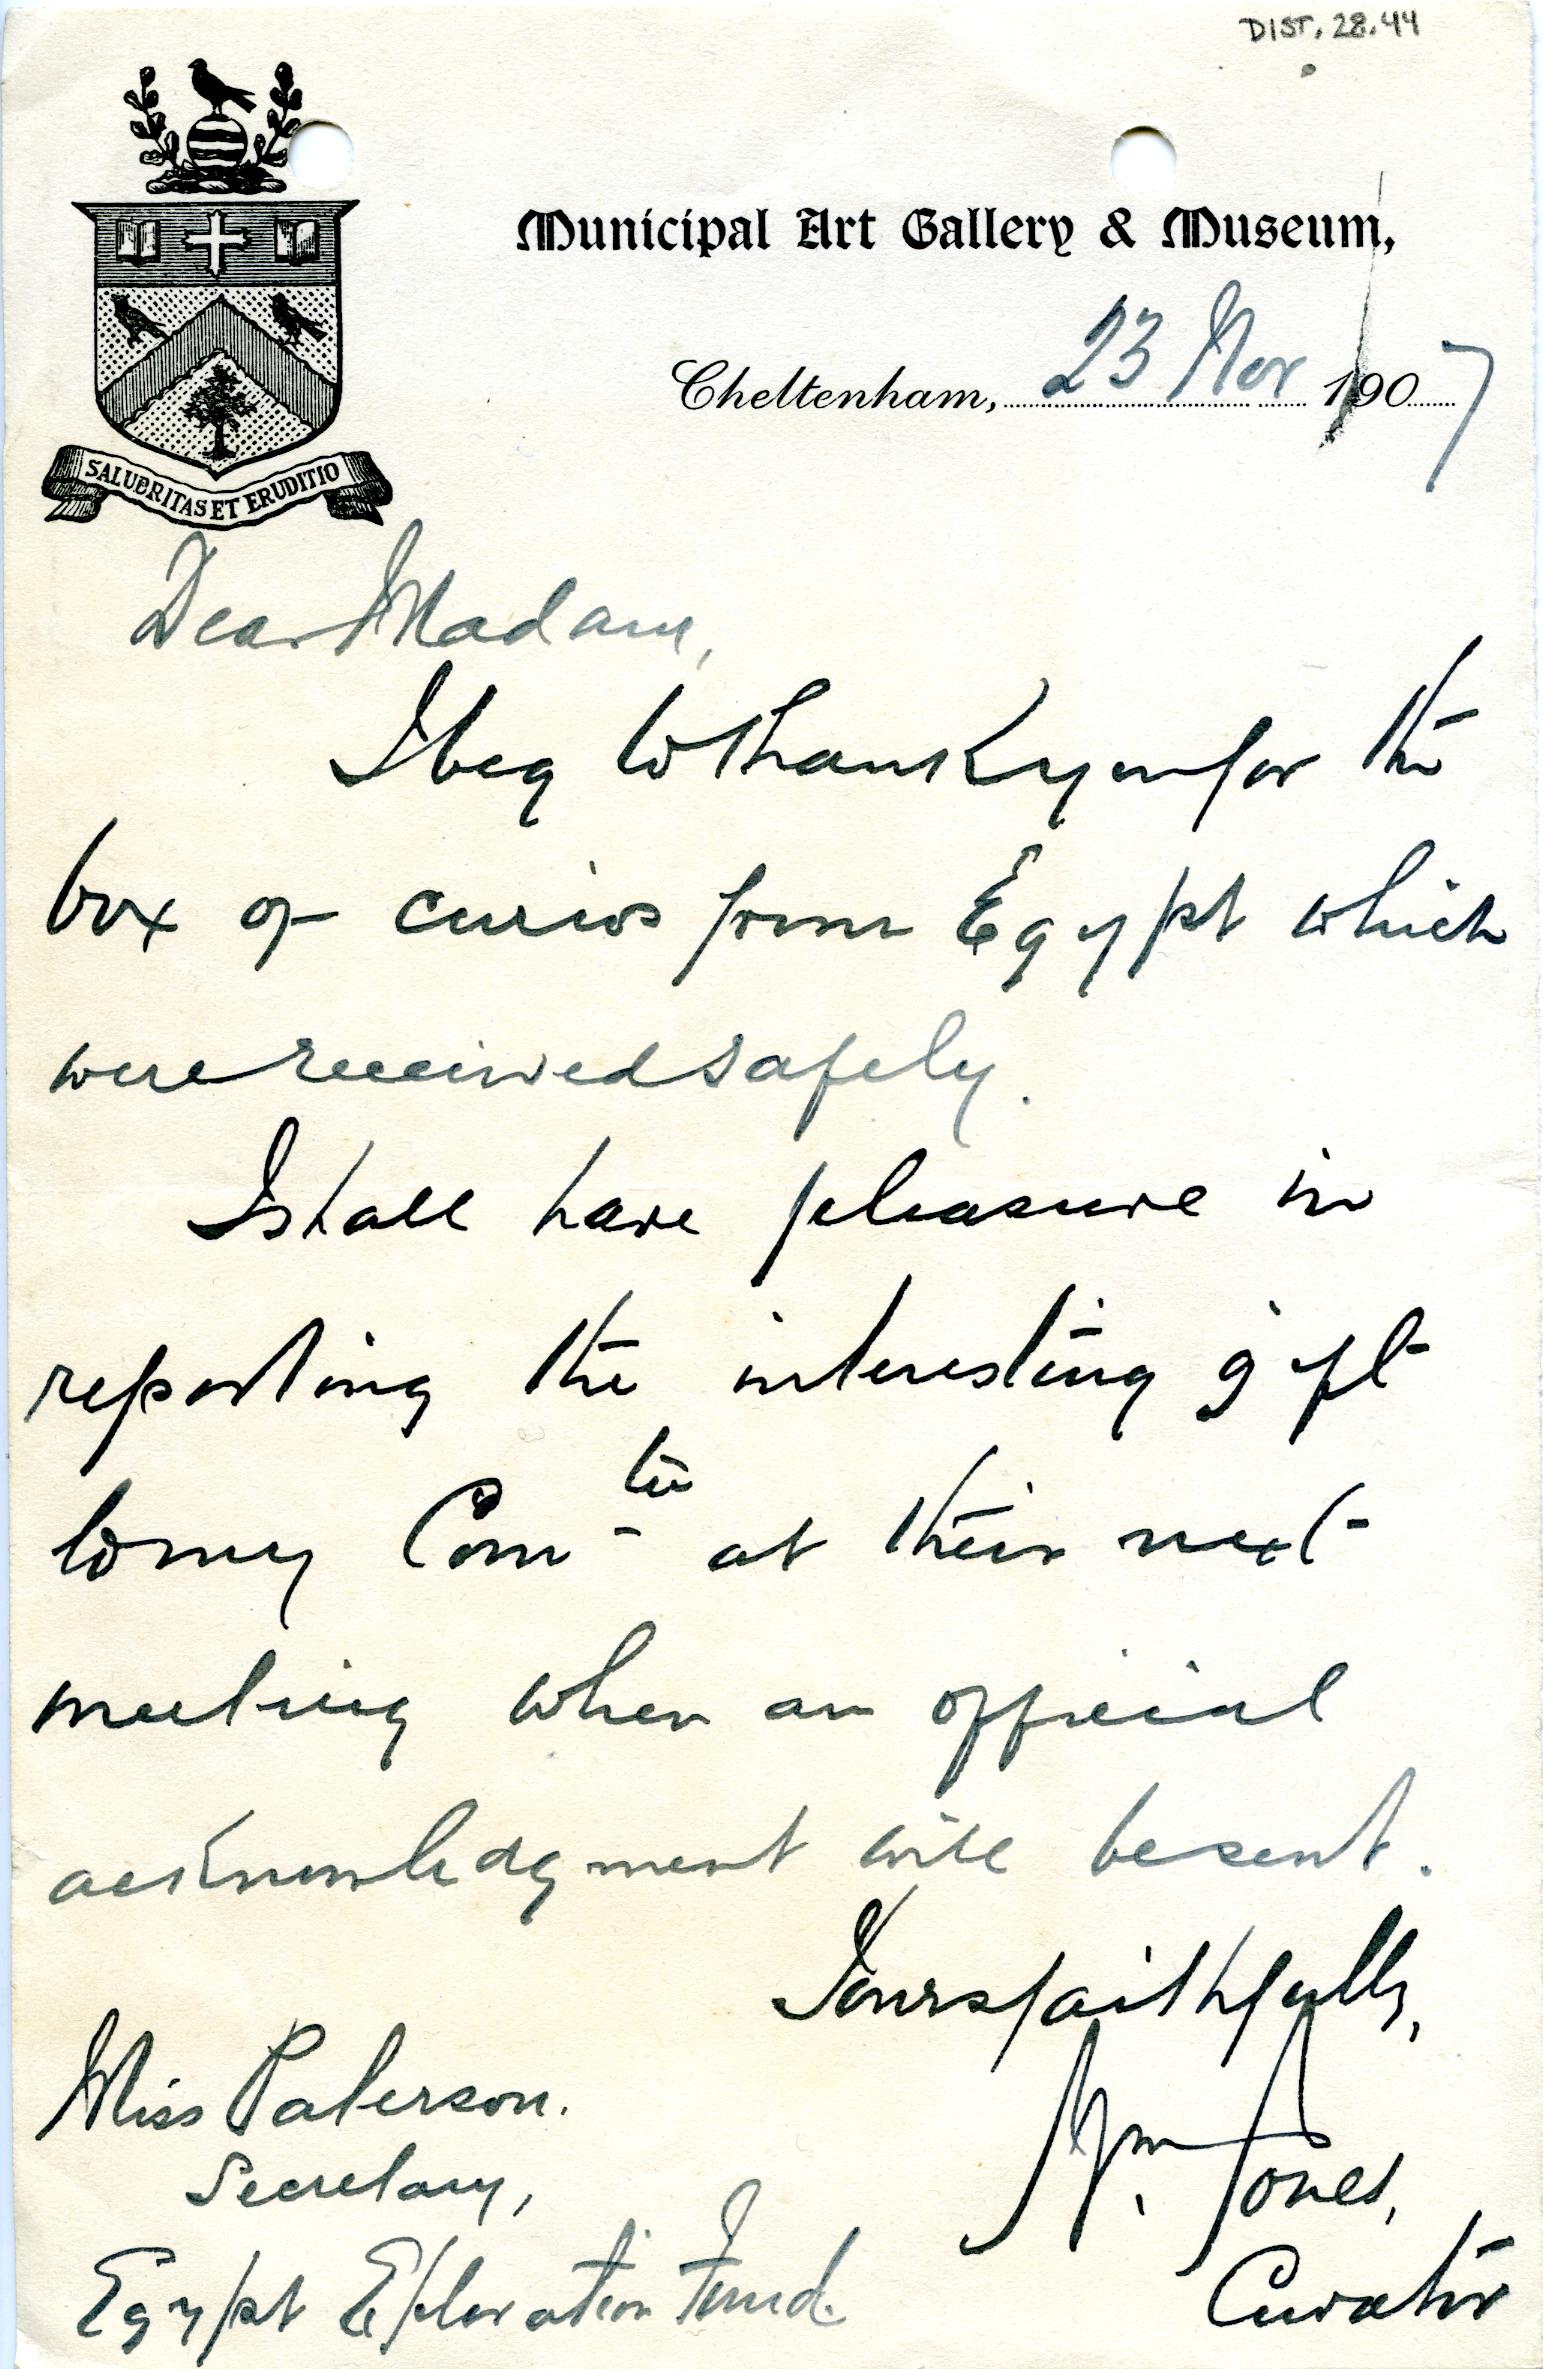 DIST. 28.44
Municipal Art Gallery & Museum,
Cheltenham, 23 Nov 1907
SALUBRITAS ET ERUDITIO
Dear Madam,
I beg to thank you for the
box of curios from Egypt which
were received safely.
I shall have pleasure in
reporting the interesting gift
to my Com^tee at their next
meeting when an official
acknowledgment will be sent.
Yours faithfully,
Wm. Jones,
Curator
Miss Paterson.
Secretary,
Egypt Exploration Fund.